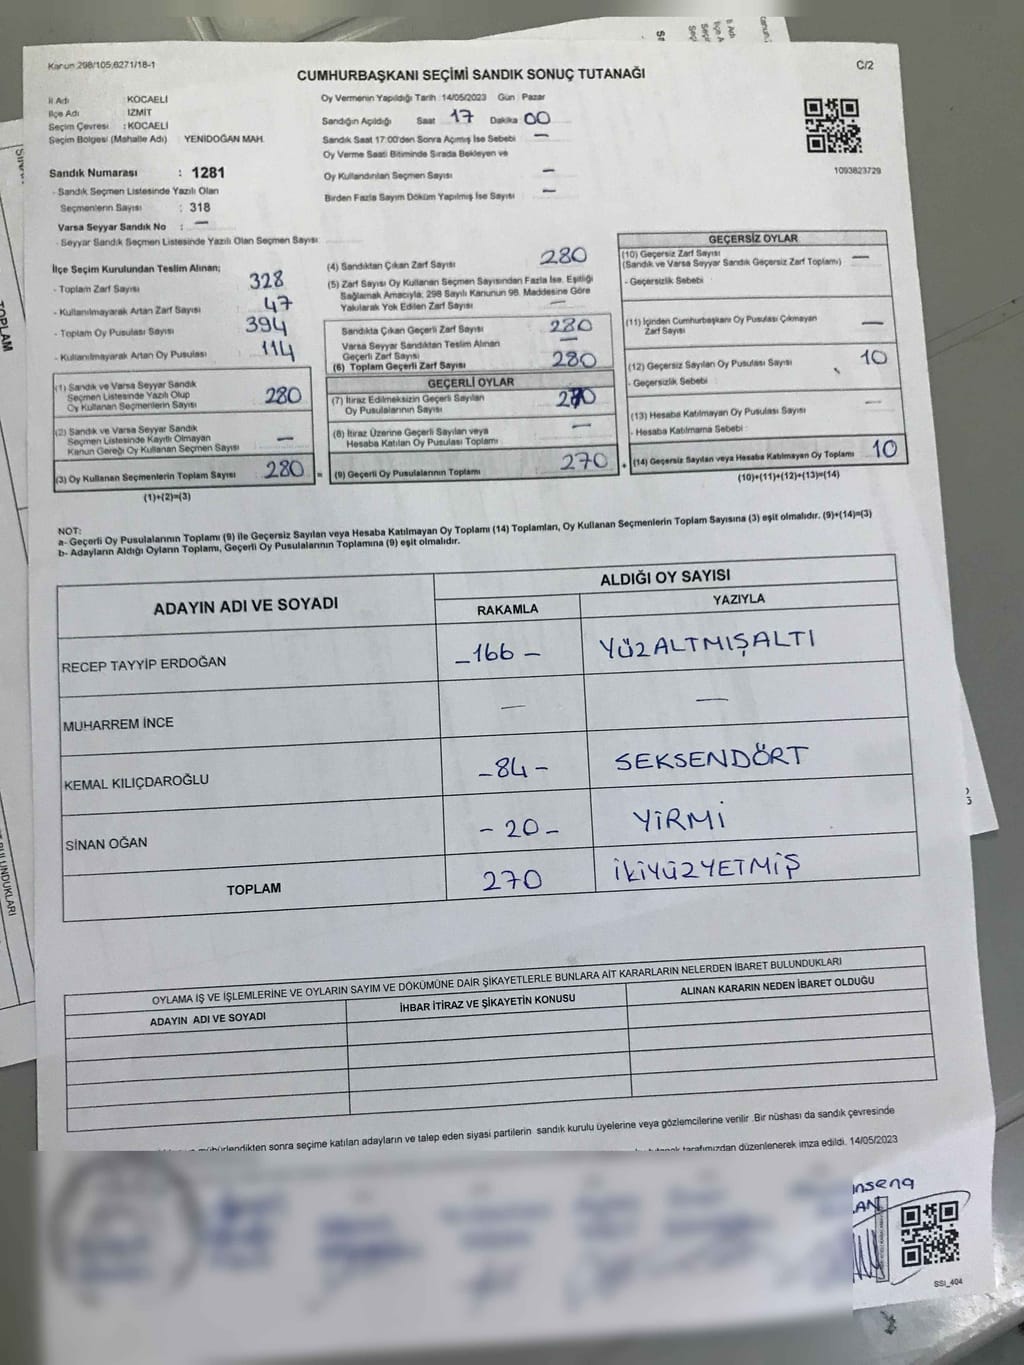 Kanun:298/105,6271/18-1
C/2
CUMHURBAŞKANI SEÇİMİ SANDIK SONUÇ TUTANAĞI
İl Adı : KOCAELİ
İlçe Adı : İZMİT
Seçim Çevresi : KOCAELİ
Seçim Bölgesi (Mahalle Adı) YENİDOĞAN MAH.
Sandık Numarası : 1281
- Sandık Seçmen Listesinde Yazılı Olan
Seçmenlerin Sayısı : 318
Varsa Seyyar Sandık No : —
- Seyyar Sandık Seçmen Listesinde Yazılı Olan Seçmen Sayısı:
Oy Vermenin Yapıldığı Tarih :14/05/2023 Gün : Pazar
Sandığın Açıldığı Saat 17 Dakika 00
Sandık Saat 17:00'den Sonra Açımış İse Sebebi —
Oy Verme Saati Bitiminde Sırada Bekleyen ve
Oy Kullandırılan Seçmen Sayısı —
Birden Fazla Sayım Döküm Yapılmış İse Sayısı —
1093823729
İlçe Seçim Kurulundan Teslim Alınan;
- Toplam Zarf Sayısı 328
- Kullanılmayarak Artan Zarf Sayısı 47
- Toplam Oy Pusulası Sayısı 394
- Kullanılmayarak Artan Oy Pusulası 114
(1) Sandık ve Varsa Seyyar Sandık
Seçmen Listesinde Yazılı Olup
Oy Kullanan Seçmenlerin Sayısı 280
(2) Sandık ve Varsa Seyyar Sandık
Seçmen Listesinde Kayıtlı Olmayan
Kanun Gereği Oy Kullanan Seçmen Sayısı —
(3) Oy Kullanan Seçmenlerin Toplam Sayısı 280 =
(1)+(2)=(3)
(4) Sandıktan Çıkan Zarf Sayısı 280
(5) Zarf Sayısı Oy Kullanan Seçmen Sayısından Fazla İse, Eşitliği
Sağlamak Amacıyla; 298 Sayılı Kanunun 98. Maddesine Göre
Yakılarak Yok Edilen Zarf Sayısı —
Sandıkta Çıkan Geçerli Zarf Sayısı 280
Varsa Seyyar Sandıktan Teslim Alınan
Geçerli Zarf Sayısı —
(6) Toplam Geçerli Zarf Sayısı 280
GEÇERLİ OYLAR
(7) İtiraz Edilmeksizin Geçerli Sayılan
Oy Pusulalarının Sayısı 270
(8) İtiraz Üzerine Geçerli Sayılan veya
Hesaba Katılan Oy Pusulası Toplamı —
(9) Geçerli Oy Pusulalarının Toplamı 270 +
GEÇERSİZ OYLAR
(10) Geçersiz Zarf Sayısı
(Sandık ve Varsa Seyyar Sandık Geçersiz Zarf Toplamı) —
- Geçersizlik Sebebi :
(11) İçinden Cumhurbaşkanı Oy Pusulası Çıkmayan
Zarf Sayısı —
(12) Geçersiz Sayılan Oy Pusulası Sayısı 10
- Geçersizlik Sebebi :
(13) Hesaba Katılmayan Oy Pusulası Sayısı —
- Hesaba Katılmama Sebebi :
(14) Geçersiz Sayılan veya Hesaba Katılmayan Oy Toplamı 10
(10)+(11)+(12)+(13)=(14)
NOT:
a- Geçerli Oy Pusulalarının Toplamı (9) ile Geçersiz Sayılan veya Hesaba Katılmayan Oy Toplamı (14) Toplamları, Oy Kullanan Seçmenlerin Toplam Sayısına (3) eşit olmalıdır. (9)+(14)=(3)
b- Adayların Aldığı Oyların Toplamı, Geçerli Oy Pusulalarının Toplamına (9) eşit olmalıdır.
ADAYIN ADI VE SOYADI
ALDIĞI OY SAYISI
RAKAMLA YAZIYLA
RECEP TAYYİP ERDOĞAN -166- YÜZALTMIŞALTI
MUHARREM İNCE — —
KEMAL KILIÇDAROĞLU -84- SEKSENDÖRT
SİNAN OĞAN -20- YİRMİ
TOPLAM 270 İKİYÜZYETMİŞ
OYLAMA İŞ VE İŞLEMLERİNE VE OYLARIN SAYIM VE DÖKÜMÜNE DAİR ŞİKAYETLERLE BUNLARA AİT KARARLARIN NELERDEN İBARET BULUNDUKLARI
ADAYIN ADI VE SOYADI İHBAR İTİRAZ VE ŞİKAYETİN KONUSU ALINAN KARARIN NEDEN İBARET OLDUĞU
mühürlendikten sonra seçime katılan adayların ve talep eden siyasi partilerin sandık kurulu üyelerine veya gözlemcilerine verilir .Bir nüshası da sandık çevresinde
tutanak tarafımızdan düzenlenerek imza edildi. 14/05/2023
SSI_404
TOPLAM
BULUNDUKLARI